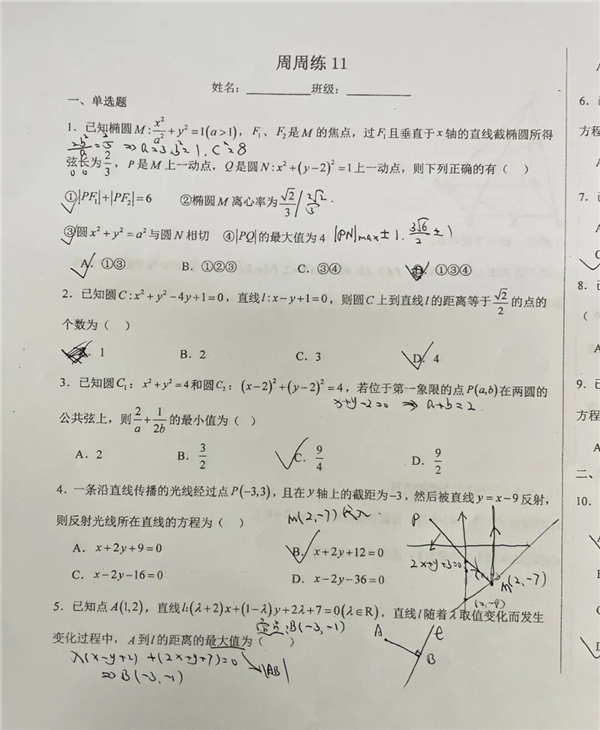 周周练 11
姓名：__________班级：__________
一、单选题
1. 已知椭圆 M: x²/a² + y² = 1(a>1)，F₁、F₂是 M 的焦点，过F₁且垂直于 x 轴的直线截椭圆所得
2b²/a = 2/3 ⇒ a=3, b²=1, c²=8
弦长为 2/3，P是 M 上一动点，Q是圆 N: x²+(y-2)²=1上一动点，则下列正确的有（ ）
①|PF₁|+|PF₂|=6 ②椭圆 M 离心率为 √2/3 / 2√2/3
③圆 x²+y²=a² 与圆 N 相切 ④|PQ|的最大值为 4 |PN|max ± 1. 3√6/2 ± 1
A. ①③ B. ①②③ C. ③④ D. ①③④
2. 已知圆 C: x²+y²-4y+1=0，直线 l: x-y+1=0，则圆 C 上到直线 l 的距离等于 √2/2 的点的
个数为（ ）
A. 1 B. 2 C. 3 D. 4
3. 已知圆 C₁: x²+y²=4和圆 C₂: (x-2)²+(y-2)²=4，若位于第一象限的点 P(a,b)在两圆的
x+y-2=0 ⇒ a+b=2.
公共弦上，则 2/a + 1/2b 的最小值为（ ）
A. 2 B. 3/2 C. 9/4 D. 9/2
4. 一条沿直线传播的光线经过点 P(-3,3)，且在 y 轴上的截距为 -3，然后被直线 y=x-9反射，
M(2,-7)
则反射光线所在直线的方程为（ ）
P
A. x+2y+9=0 B. x+2y+12=0
2x+y+3=0
M(2,-7)
C. x-2y-16=0 D. x-2y-36=0
5. 已知点 A(1,2)，直线 l:(λ+2)x+(1-λ)y+2λ+7=0(λ∈R)，直线 l 随着 λ 取值变化而发生
定点: B(-3,-1)
变化过程中，A 到 l 的距离的最大值为（ ）
A
l
B
λ(x-y+2)+(2x+y+7)=0
|AB|
⇒ B(-3,-1)
6.
方程
7.
8.
（
9.
方程
二、
10.